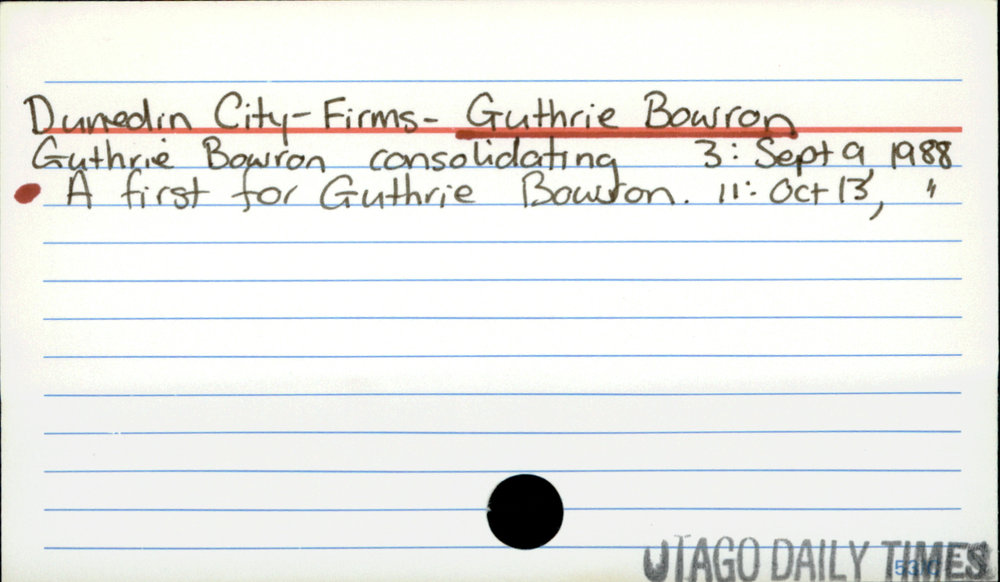 Dunedin City-Firms- Guthrie Bowron
Guthrie Bowron consolidating 3: Sept 9, 1988
A first for Guthrie Bowron. 11: Oct 13, "
OTAGO DAILY TIMES